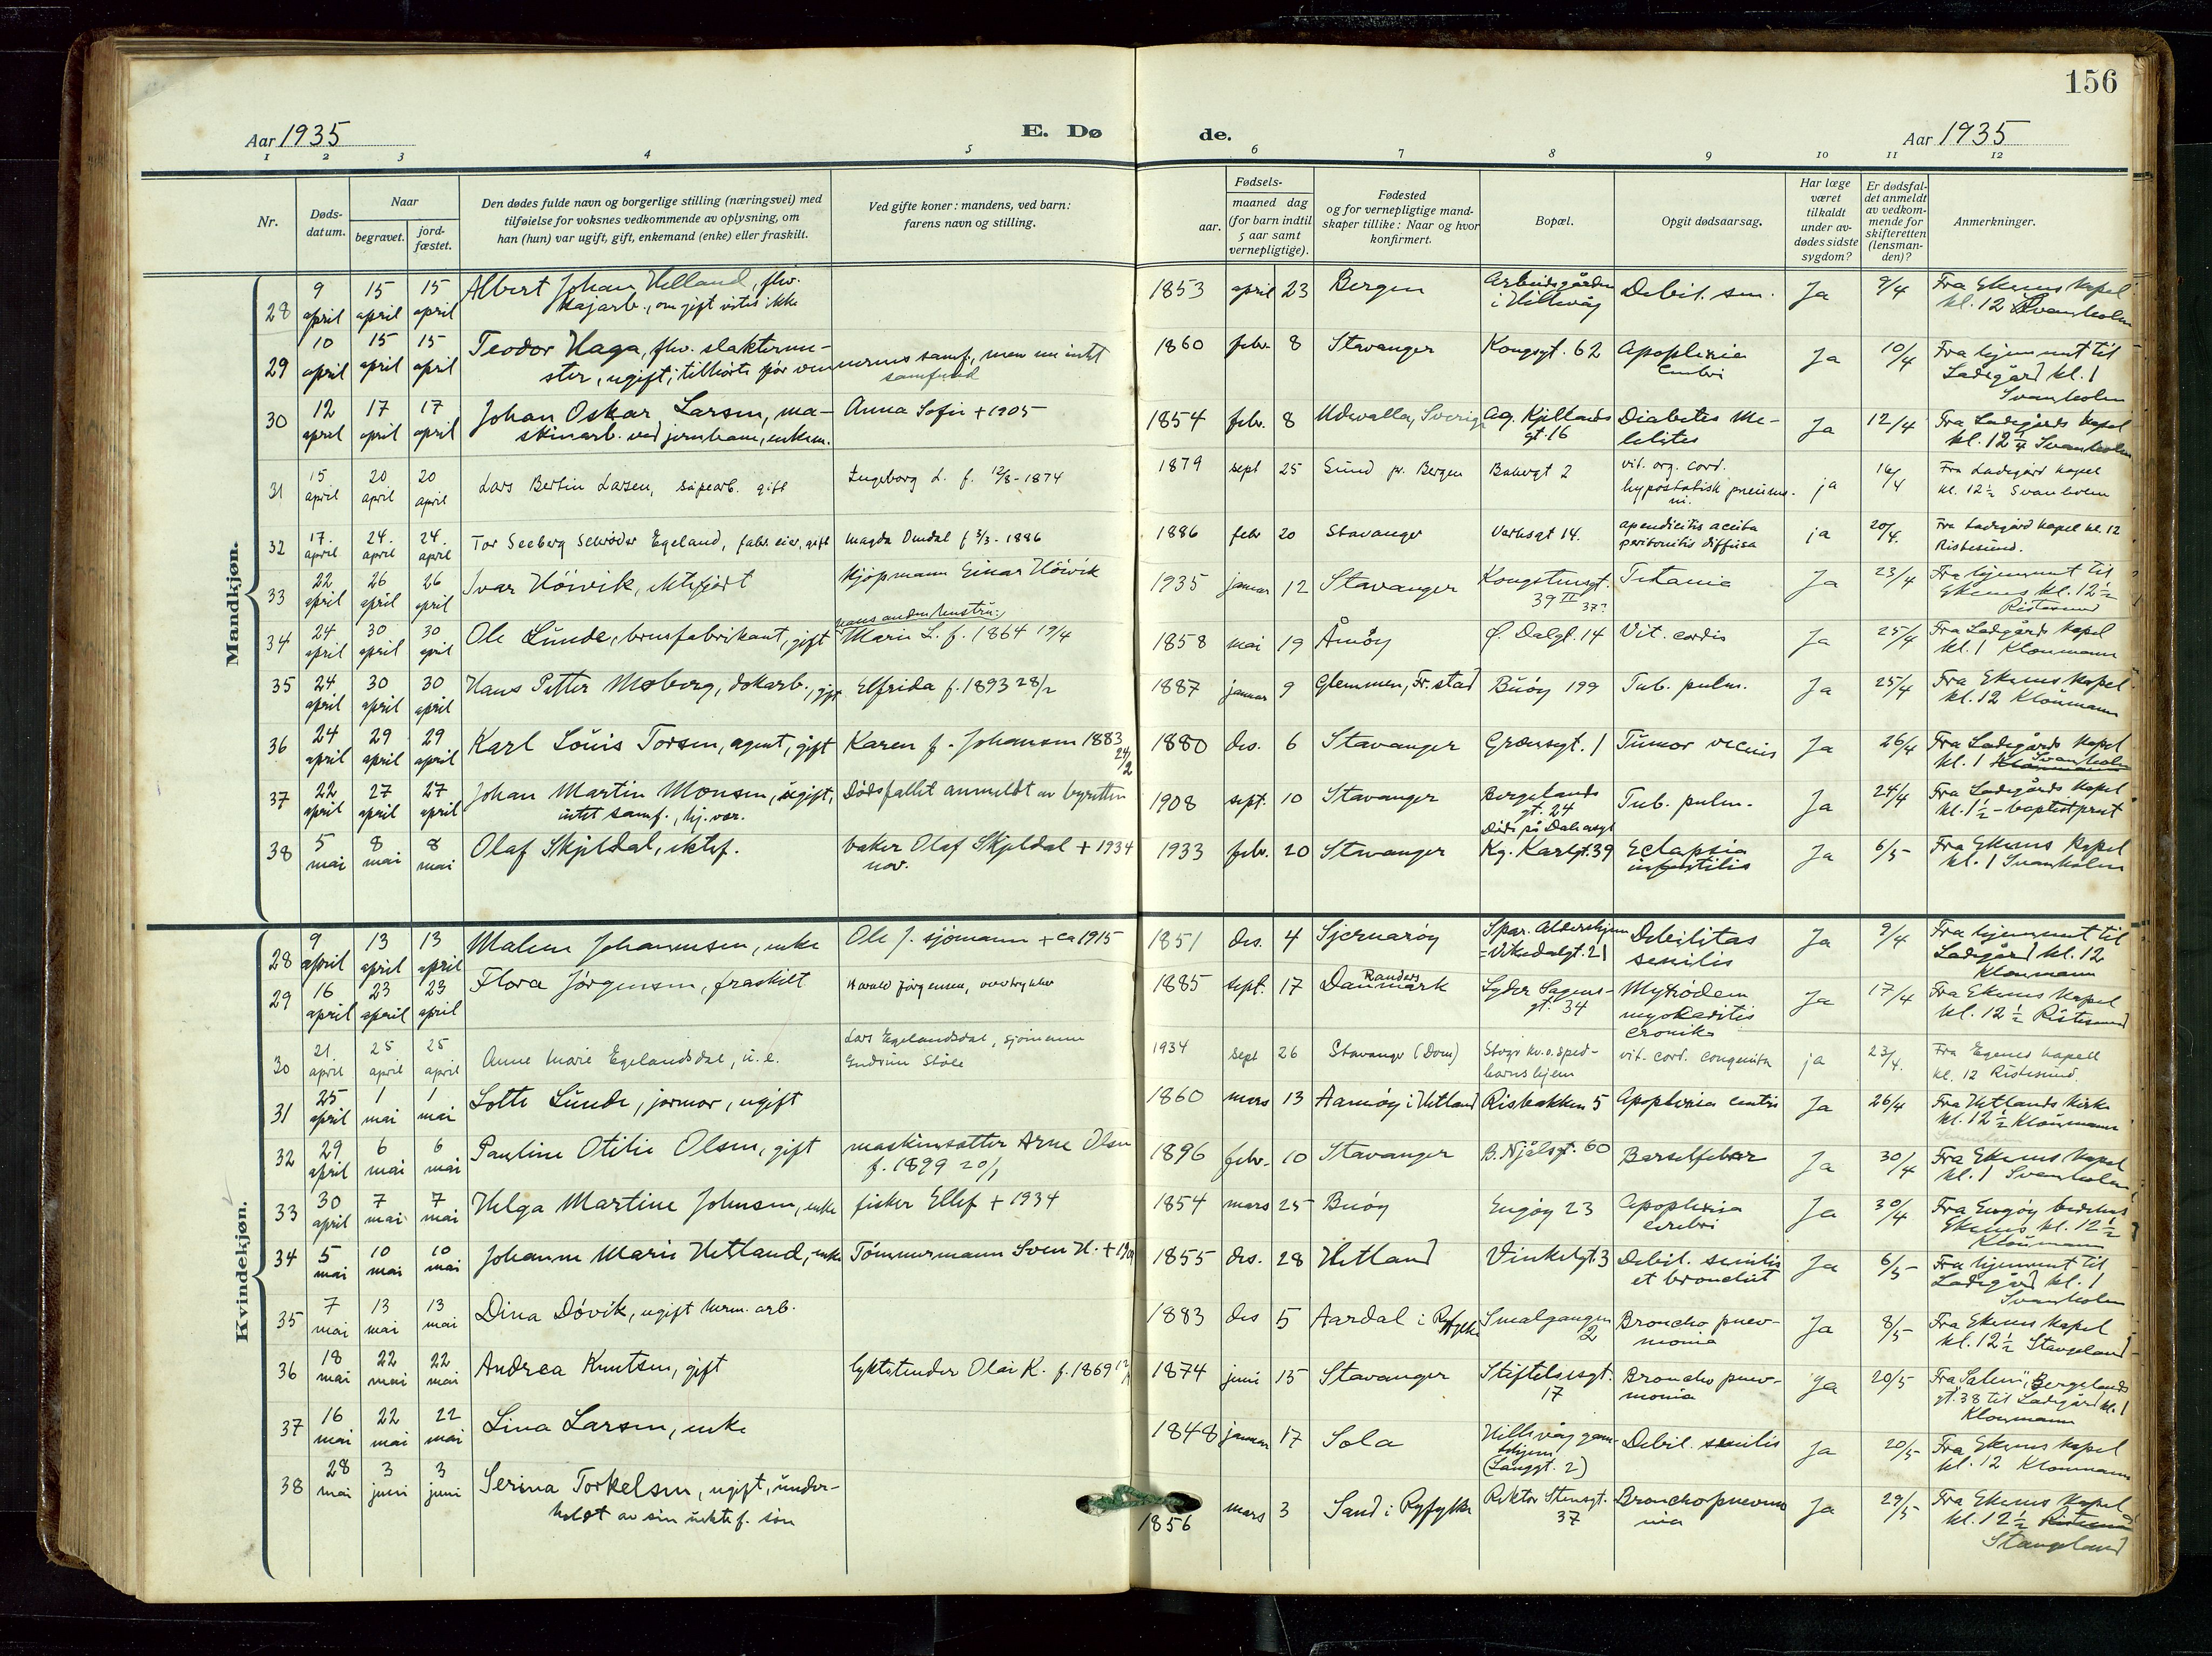 156
Aar 1935
E. Dø
de.
Aar 1935
1 2 3 4 5 6 7 8 9 10 11 12
Nr.
Døds-
datum.
Naar
begravet.
jord-
fæstet.
Den dødes fulde navn og borgerlige stilling (næringsvei) med
tilføielse for voksnes vedkommende av oplysning, om
han (hun) var ugift, gift, enkemand (enke) eller fraskilt.
Ved gifte koner: mandens, ved barn:
farens navn og stilling.
aar.
Fødsels-
maaned dag
(for barn indtil
5 aar samt
vernepligtige).
Fødested
og for vernepligtige mand-
skaper tillike: Naar og hvor
konfirmert.
Bopæl.
Opgit dødsaarsag.
Har læge
været
tilkaldt
under av-
dødes sidste
sygdom?
Er dødsfal-
det anmeldt
av vedkom-
mende for
skifteretten
(lensman-
den)?
Anmerkninger.
Mandkjøn.
28 9 april 15 april 15 april Albert Johan Helland, fhv. 1853 april 23 Bergen Arbeidsgården Debil. sen. Ja 9/4 Fra Ekenes kapel
kajarb., om gift vites ikke i Hillevåg kl. 12 Svanholm
29 10 april 15 april 15 april Teodor Haga, fhv. slakterme- 1860 febr. 8 Stavanger Kongsgt. 62 Apoplexia Ja 10/4 Fra hjemmet til
ster, ugift; tilhørte før vennernes samf., men nu intet cerebri Ladegård kl. 1
samfund Svanholm
30 12 april 17 april 17 april Johan Oskar Larsen, ma- Anna Sofie + 1905 1854 febr. 8 Udevalla, Sverige Ag. Kjellands Diabetes me- Ja 12/4 Fra Ladegårds kapel
skinarb. ved jernbane, enkem. gt. 16 lelites kl. 12 1/4 Svanholm
31 15 april 20 april 20 april Lars Bertin Larsen, såpearb. gift Ingeborg L. f. 12/8-1874 1879 sept 25 Sund pr. Bergen Bakergt 2 vit. org. cord. ja 16/4 Fra Ladegård kapel
hypostatisk pneumo- kl. 12 1/2 Svanholm
ni.
32 17. april 24. april 24. april Tor Seeberg Schrøder Egeland, fabr. eier, gift Magda Omdal f 3/3-1886 1886 febr 20 Stavanger Verksgt 14. apendicitis acuta ja 20/4. Fra Ladegård kapel kl. 12
peritonitis diffusa Ristesund.
33 22 april 26 april 26 april Ivar Höivik, ektefødt Kjøpmann Einar Höivik 1935 januar 12 Stavanger Kongstensgt. Tetania Ja 23/4 Fra hjemmet til
39 II 37? Ekenes kl. 12 1/2
Ristesund
hans anden hustru:
34 24 april 30 april 30 april Ole Lunde, brusfabrikant, gift Marie L. f. 1864 19/4 1858 mai 19 Åmøy Ø. Dalgt. 14 Vit. cordis Ja 25/4 Fra Ladegårds kapel
kl. 1 Kloumann
35 24 april 30 april 30 april Hans Petter Moberg, dokarb., gift Elfrida f. 1893 28/2 1887 januar 9 Glemmen, Fr.stad Buöy 199 Tub. pulm. Ja 25/4 Fra Ekenes kapel
kl. 12 Kloumann
36 24 april 29 april 29 april Karl Louis Torsen, agent, gift Karen f. Johansen 1883 24/2 1880 des. 6 Stavanger Grensegt. 1 Tumor vecuis Ja 26/4 Fra Ladegårds kapel
kl. 1 Kloumann Svanholm
37 22 april 27 april 27 april Johan Martin Monsen, ugift, Dødsfallet anmeldt av byretten 1908 sept. 10 Stavanger Bergelands Tub. pulm. Ja 24/4 Fra Ladegårds kapel
intet samf., hj.vær. gt. 24 kl. 1 1/2 - baptistprest
Död på Daleasyl
38 5 mai 8 mai 8 mai Olaf Skjeldal, ektef. baker Olaf Skjeldal + 1934 1933 febr. 20 Stavanger Kg. Karlgt. 39 Eclapsia Ja 6/5 Fra Ekenes Kapel
nov. infantilis kl. 1 Svanholm
Kvindekjøn.
28 9 april 13 april 13 april Malene Johannesen, enke Ole J. sjömann + ca 1915 1851 des. 4 Sjernarøy Spar. Aldershjem Debilitas Ja 9/4 Fra hjemmet til
=Vikedalgt. 21 senilis Ladegård kl. 12
Kloumann
29 16 april 23 april 23 april Flora Jørgensen, fraskilt Harald Jørgensen, overtrykker 1885 sept. 17 Danmark Randers Lyder Sagens- Myxödem Ja 17/4 Fra Ekenes kapel
gt. 34 myokaritis kl. 12 1/2 Ristesund
cronika
30 21. april 25 april 25 april Anne Marie Egelandsdal, u.e. Lars Egelandsdal, sjömann 1934 sept 26 Stavanger (Dom) Stvgr kv. o. sped- vit. cord. congenita ja 23/4. Fra Egenes kapell
Gudrun Støle barnshjem kl. 12 Ristesund.
31 25 april 1 mai 1 mai Lotte Lunde, jormor, ugift 1860 mars 13 Aamøy i Hetland Risbakken 5 Apoplexia cerebri Ja 26/4 Fra Hetlands kirke
kl. 12 1/2 Kloumann
32 29 april 6 mai 6 mai Pauline Otilie Olsen, gift maskinsetter Arne Olsen 1896 febr. 10 Stavanger B. Njålsgt. 60 Barselfeber Ja 30/4 Fra Ekenes kapel
f. 1899 20/1 kl. 1 Svanholm
33 30 april 7 mai 7 mai Helga Martine Johnsen, enke fisker Ellef + 1934 1854 mars 25 Buöy Engøy 23 Apoplexia Ja 30/4 Fra Engøy bedehus
cerebri Ekenes kl. 12 1/2
Kloumann
34 5 mai 10 mai 10 mai Johanne Marie Hetland, enke Tömmermann Sven H. + 1855 des. 28 Hetland Vinkelgt. 3 Debil. senilis Ja 6/5 Fra hjemmet til
et bronchit Ladegård kl. 1
Svanholm
35 7 mai 13 mai 13 mai Dina Dövik, ugift herm. arb. 1883 des 5 Aardal i Ryfylke Smalgangen Broncho pnev- Ja 8/5 Fra Ekenes kapel
2 monia kl. 12 1/2 Stangeland
36 18 mai 22 mai 22 mai Andrea Knutsen, gift lyktetender Olai K. f. 1869 1874 juni 15 Stavanger Stiftelsesgt. Broncho pnev- Ja 20/5 Fra "Salem", Bergelands
17 monia gt. 38 til Ladegård kl. 1
Kloumann
37 16 mai 22 mai 22 mai Lina Larsen, enke 1848 januar 17 Sola Hillevåg gam- Debil. senilis Ja 20/5 Fra Ekenes kapel
lehjem kl. 12 Kloumann
(Langgt. 2)
38 28 mai 3 juni 3 juni Serina Torkelsen, ugift, under- 1856 mars 3 Sand i Ryfylke Rektor Stensgt. Bronchopneumo Ja 29/5 Fra Ekenes kapel
holdt av sin uektef. søn 37 nia kl. 12 1/2 Ristesund
Stangeland